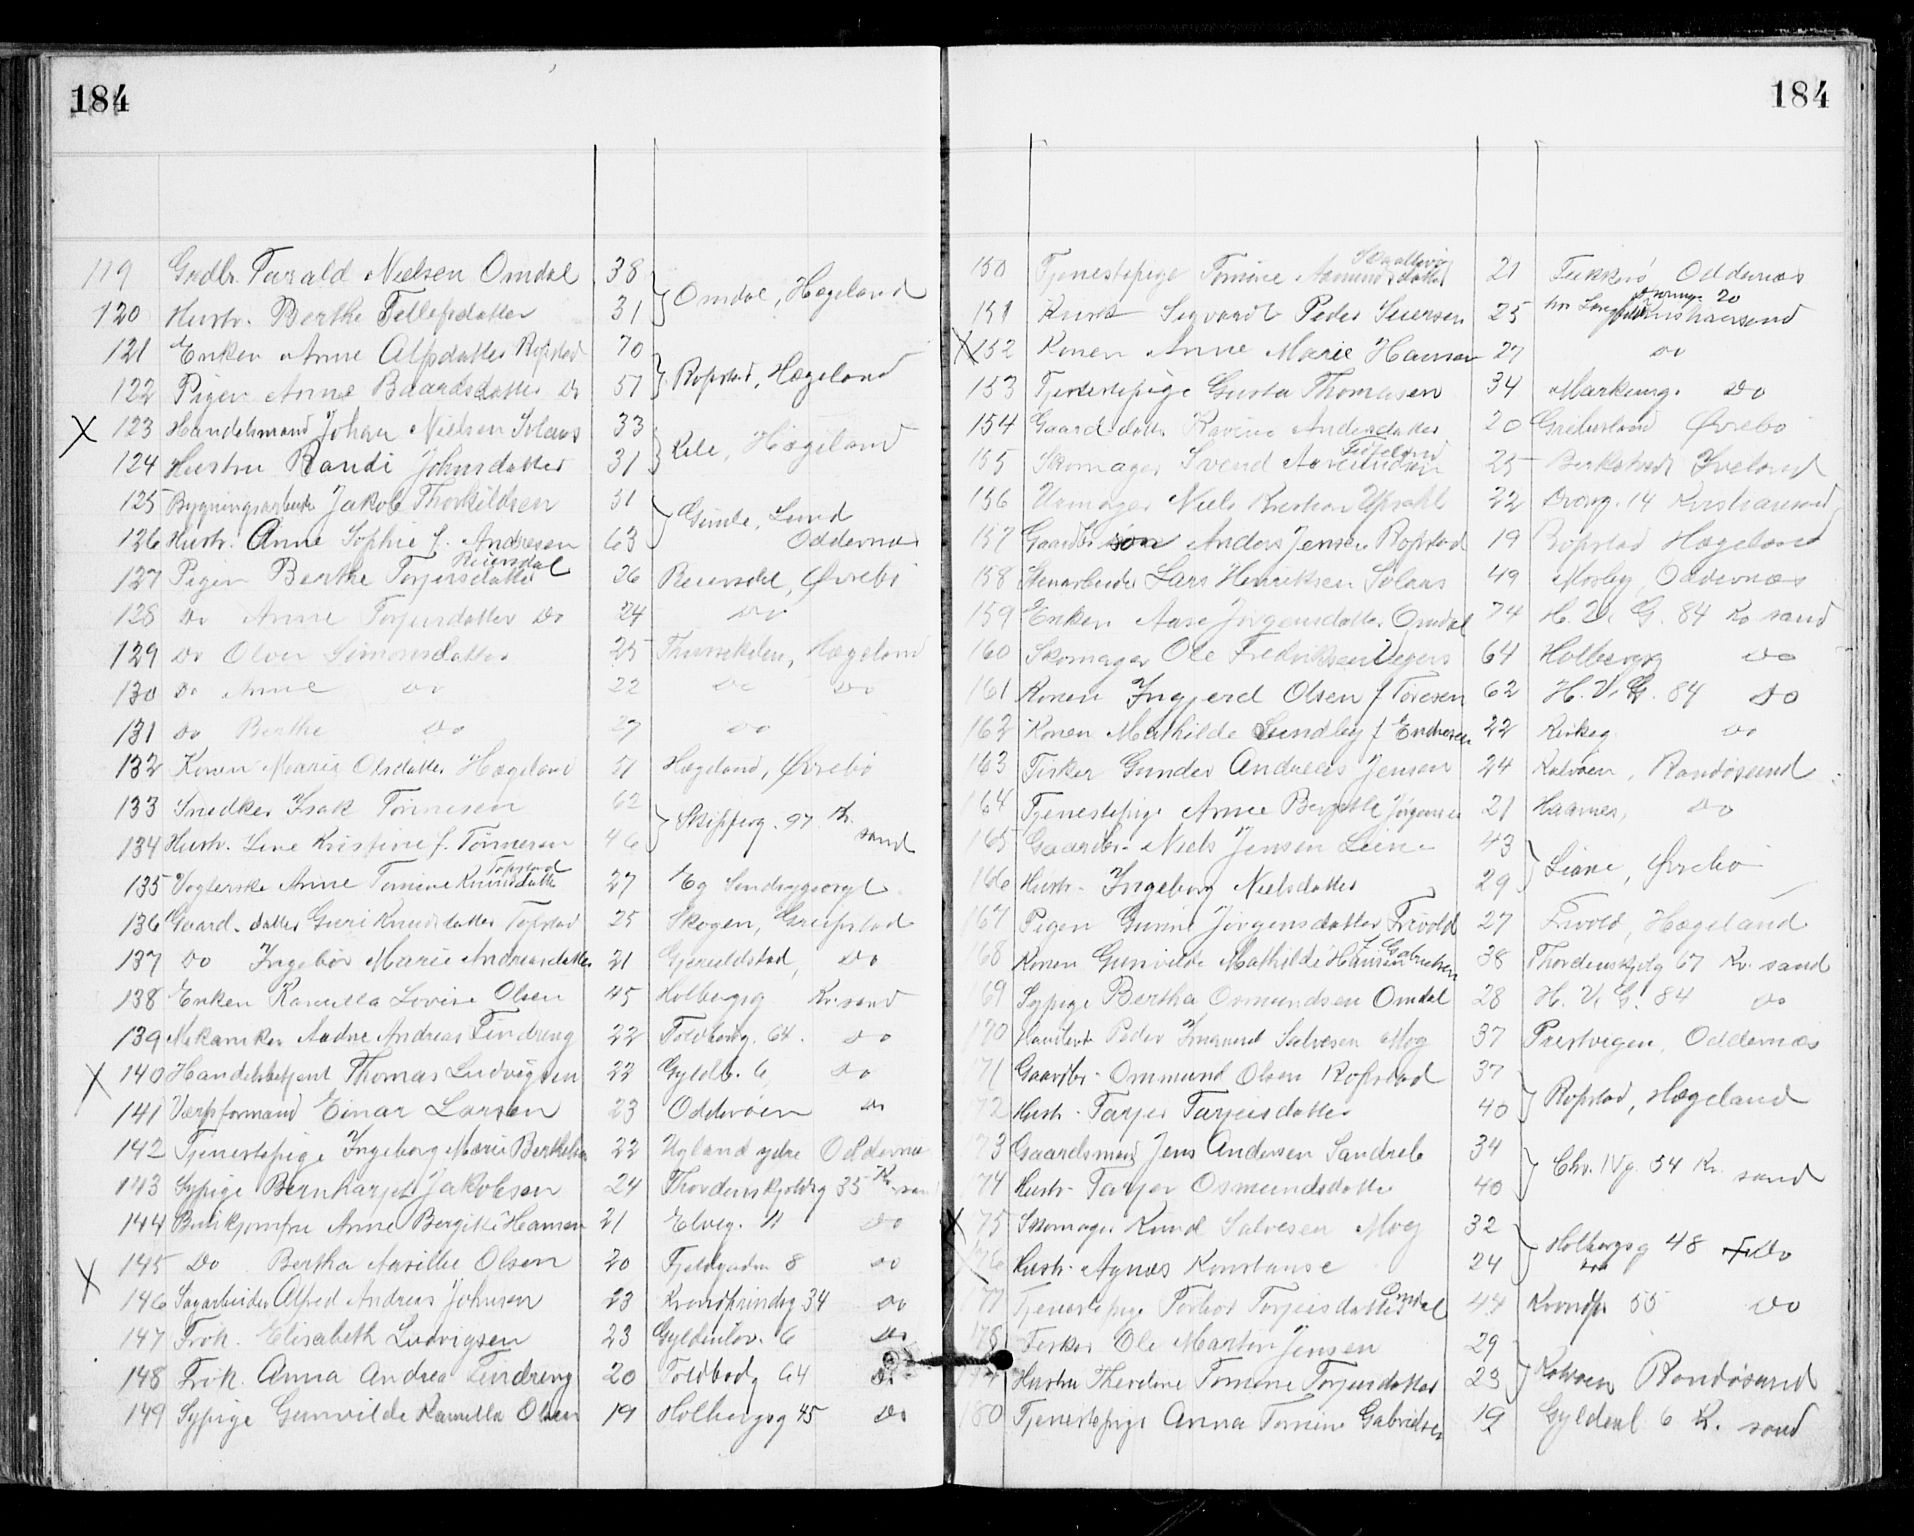 184
119 Grdbr. Tarald Nielsen Omdal 38
Omdal, Hægeland
120 Hustr. Berthe Tellefsdatter 31
121 Enken Anne Alfsdatter Ropstad 70
Ropstad, Hægeland
122 Pigen Anne Baardsdatter Do 57
X 123 Handelsmand Johan Nielsen Solaas 33
Kile, Hægeland
124 Hustru Randi Johnsdatter 31
125 Bygningsarbeider Jakob Thorkildsen 51
Gimle, Lund
Oddernes
126 Hustr. Anne Sophie f. Andresen 63
Reiersdal
127 Pigen Berthe Torjusdatter 26 Reiersdal, Øvrebø
128 Do Anne Torjusdatter Do 24 Do
129 Do Olver Simonsdatter 25 Hægeland
130 Do Anne Do 22 Do Do
131 Do Berthe Do 27 Do
132 Konen Marie Olsdatter Hægeland 51 Hægeland, Øvrebø
133 Snedker Isak Tønnesen 62
Skipperg. 97 Kr.
sand
134 Hustr. Line Kristine f. Tønnesen 46
Topstad
135 Vogterske Anne Tomine Knudsdatter 27 Eg Sindsygeasyl
136 Gaard. datter Guri Knudsdatter Topstad 25 Skogen, Greipstad
137 Do Ingebor Marie Andreasdatter 21 Do
138 Enken Kamilla Lovise Olsen 45 Holbergsg Kr. sand
139 Mekaniker Andreas Tindreng 22 Toldbodg. 64. Do
X 140 Handelsbetjent Thomas Ludvigsen 22 Gyldb. 6 Do
141 Værpsformand Einar Larsen 23 Odderøen Do
142 Tjenestepige Ingeborg Marie Berthelsen 22 Ugland ydre Oddernes
143 Sypige Jakobsen 24 Thordenskjoldsg 35 Kr. san
144 Butikjomfru Anne Bergitte Hansen 21 Elveg. 11 Do
X 145 Do Bertha Olsen 20 Fjeldgaden 8 Do
146 Sagarbeider Alfred Andreas Johnsen 23 Kronprindsg 34 Do
147 Frøk. Elisabeth Ludvigsen 23 Gyldenlov. 6 Do
148 Frøk. Anna Andrea Tindreng 20 Toldbodg 64 Do
149 Sypige Gunvilde Kamilla Olsen 19 Holbergsg 45 Do
184
150 Tjenestepige Tomine Aamundsdatter 21 Oddernes
Dronn. 20
151 Kusk Sigvardt Peder Siversen 25 Kristiansand
X 152 Konen Anne Marie Hansen 27 Do
153 Tjenestepige Gusta Thomasen 34 Markensg. Do
154 Gaard datter Andersdatter 20 Øvrebø
155 Skomager Svend 25 Iveland
156 Urmager Niels Kristian Upsahl 22 Dronng. 14 Kristiansand
157 Gaardbr søn Anders Jensen Ropstad 19 Ropstad Hægeland
158 Stenarbeider Lars Henriksen Solaas 49 Mosby, Oddernes
159 Enken Aase Jørgensdatter Omdal 74 H. V. G. 84 Kr. sand
160 Skomager Ole Fredriksen Vegers 64 Holbergsg Do
161 Konen Ingjerd Olsen f Toresen 62 H. V. G. 84 Do
162 Konen Mathilde Sundby f Endresen 22 Kirkeg Do
163 Fisker Gunder Andreas Jensen 24 Kalvøen, Randøsund
164 Tjenestepige Anne Bergitte Jørgensen 21 Haanes, Do
165 Gaardbr. Niels Jensen Liane 43
Liane, Øvrebø
166 Hustr. Ingeborg Nielsdatter 29
167 Pigen Gunine Jørgensdatter Frivold 27 Frivold, Hægeland
68 Konen Gunvilde Mathilde Hansen f. Gabrielsen 38 Thordenskjolg 67 Kr. sand
69 Sypige Bertha Osmundsen Omdal 28 H. V. G. 84 Do
170 Peder Salvesen Moy 37 Prestvigen, Oddernes
71 Gaardbr. Ommund Olsen Ropstad 37
Ropstad, Hægeland
72 Hustr. Tarjer Tarjeisdatter 40
73 Gaardsmand Jens Andersen Sandreb 34
Chr. IVg. 54 Kr. sand
74 Hustr. Tarjer Osmundsdatter 40
X 75 Skomager Knud Salvesen Moy 32
Holbergsg 48 Do
76 Hustr. Agnes Konstanse 24
Omdal
177 Tjenestepige Torbor Torjusdatter 44 Kronpr 55 Do
178 Fisker Ole Martin Jensen 29
Kalvøen Randøsund
Hustru Theodine Tomine Torjusdatter 23
180 Tjenestepige Anna Tomine Gabrielsen 19 Gyldenl 6 Kr. sand